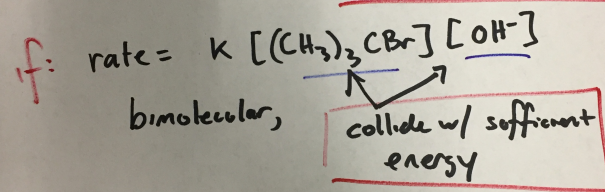 if: rate = K [(CH₃)₃CBr] [OH⁻]
bimolecular,
collide w/ sufficient
energy